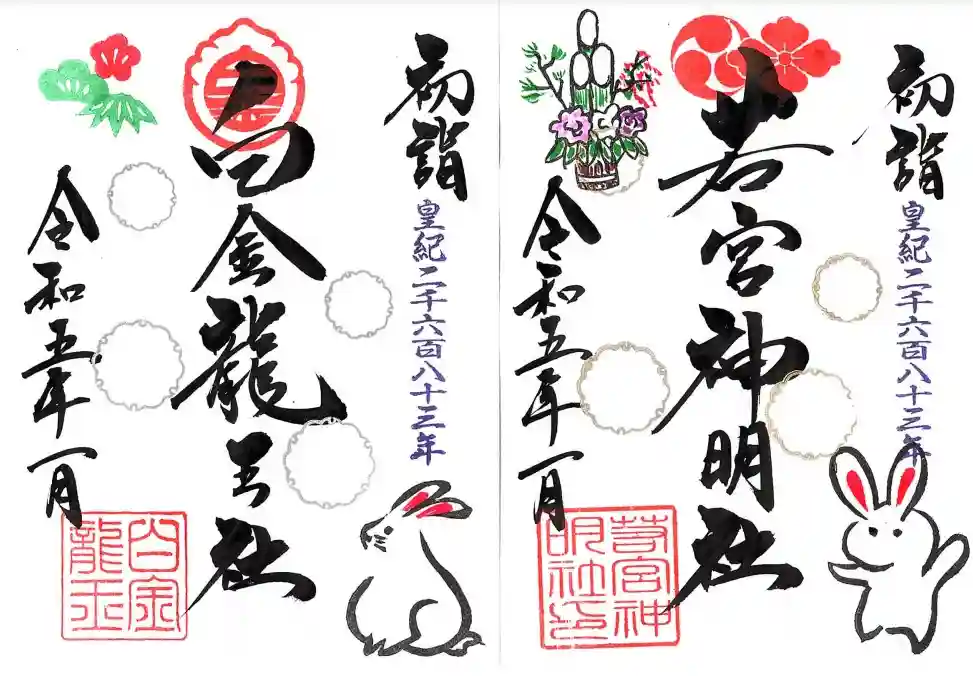 初詣
皇紀二千六百八十三年
白金龍王社
令和五年一月
白金
龍王
初詣
皇紀二千六百八十三年
若宮神明社
令和五年一月
若宮神
明社印